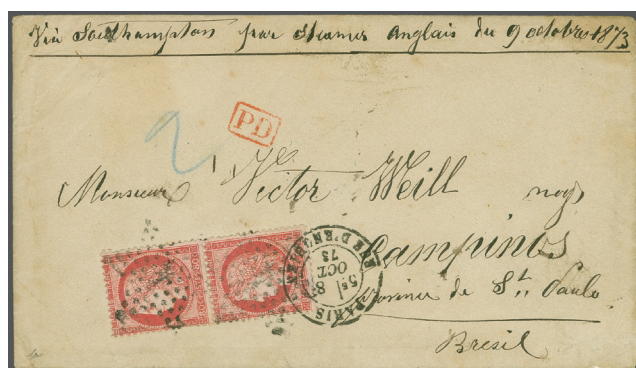 Via Southampton par Steamer Anglais du 9 octobre 1873
2
PD
Monsieur Victor Weill
Campinos
Province de St. Paulo
Bresil
PARIS
R. D'ENGHIEN
5E
8
OCT.
73